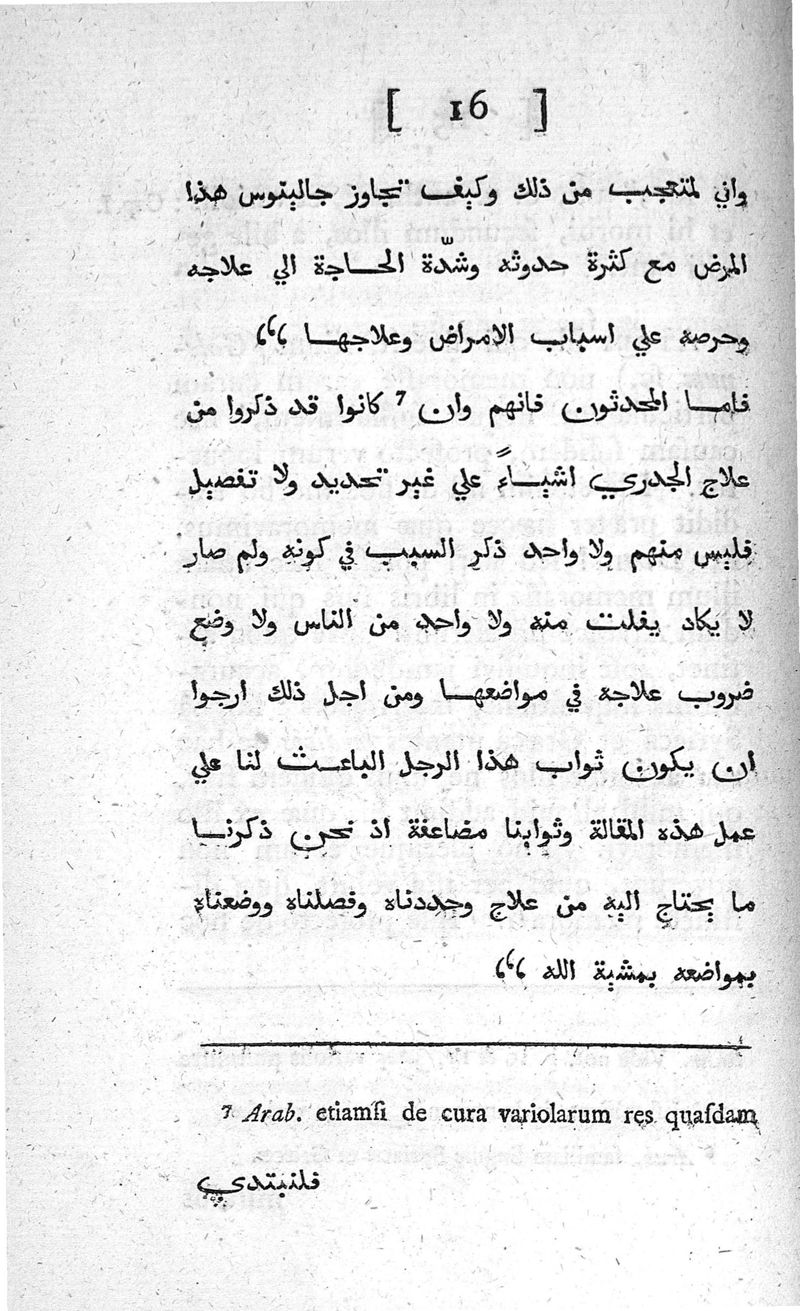 [ 16 ]
واني لمتعجب من ذلك وكيف تجاوز جالينوس هذا
المرض مع كثرة حدوثه وشدّة الحاجة الي علاجه
وحرصه علي اسباب الامراض وعلاجها
فاما المحدثون فانهم وان 7 كانوا قد ذكروا من
علاج الجدري اشياءً علي غير تحديد ولا تفصيل
فليس منهم ولا واحد ذكر السبب في كونه ولم صار
لا يكاد يفلت منه ولا واحد من الناس ولا وضع
ضروب علاجه في مواضعها ومن اجل ذلك ارجوا
ان يكون ثواب هذا الرجل الباعث لنا علي
عمل هذه المقالة وثوابنا مضاعفة اذ نحن ذكرنا
ما يحتاج اليه من علاج وجددناه وفصلناه ووضعناه
بمواضعه بمشية الله
7 Arab. etiamſi de cura variolarum res quaſdam
فلنبتدي